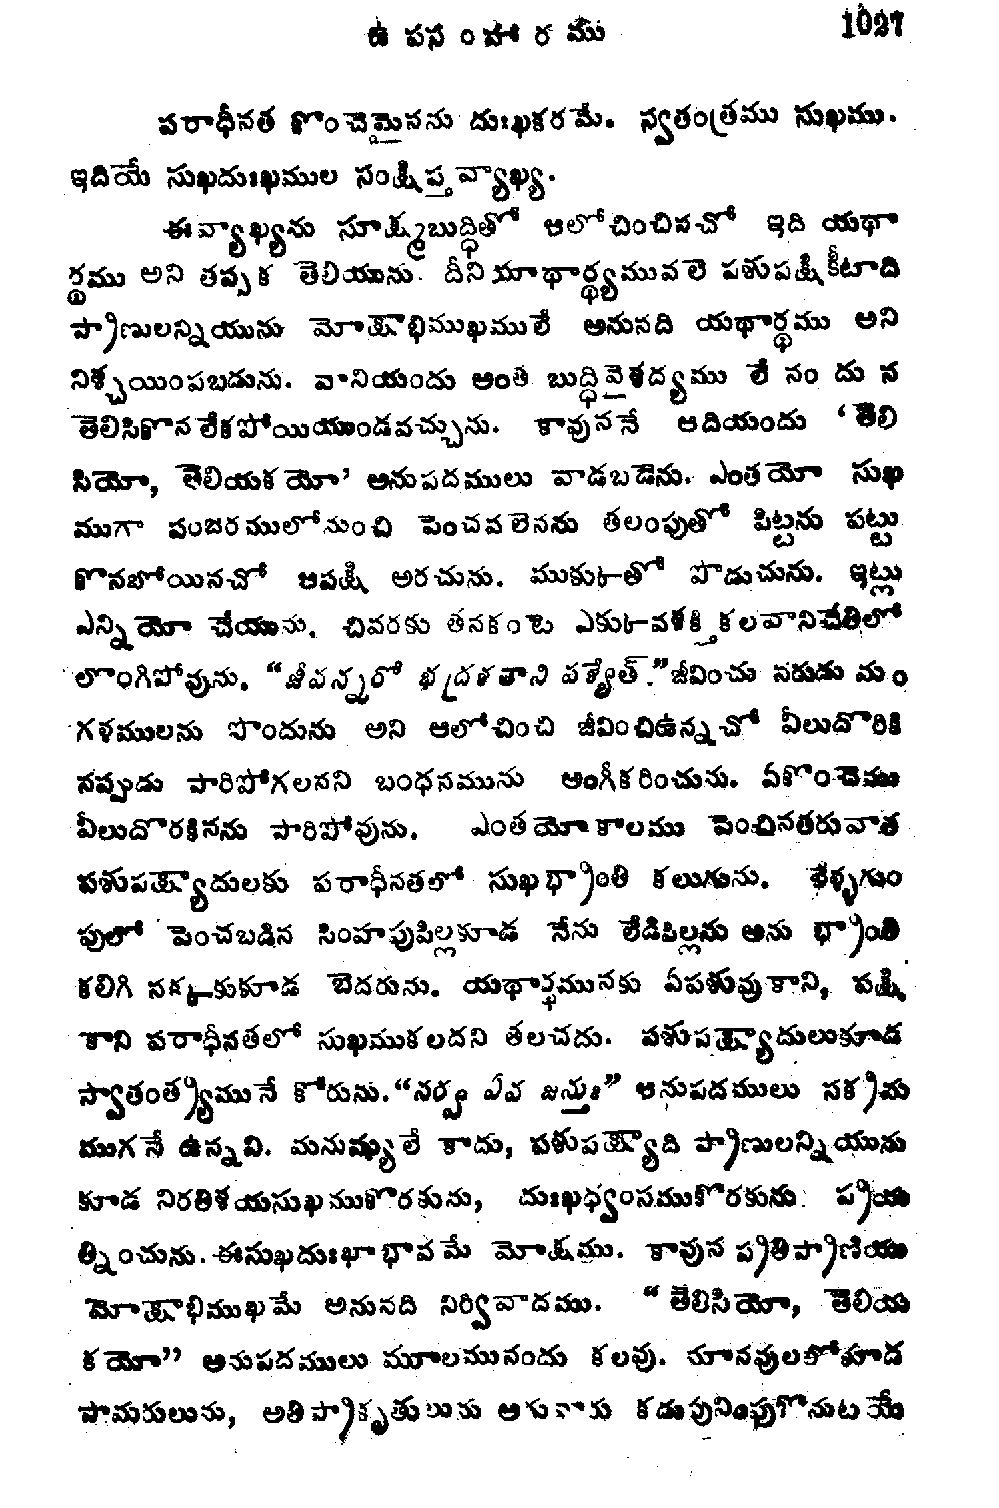 ఉపసంహారము 1027
పరాధీనత కొంచెమైనను దుఃఖకరమే. స్వతంత్రము సుఖము.
ఇదియే సుఖదుఃఖముల సంక్షిప్తవ్యాఖ్య.
ఈవ్యాఖ్యను సూక్ష్మబుద్ధితో ఆలోచించినచో ఇది యథా
ర్థము అని తప్పక తెలియును. దీనియాథార్థ్యమువలె పశుపక్షికీటాది
ప్రాణులన్నియును మోక్షాభిముఖములే అనునది యథార్థము అని
నిశ్చయింపబడును. వానియందు అంత బుద్ధివైశద్యము లేనందున
తెలిసికొనలేకపోయియుండవచ్చును. కావుననే ఆదియందు ‘తెలి
సియో, తెలియకయో’ అనుపదములు వాడబడెను. ఎంతయో సుఖ
ముగా పంజరములోనుంచి పెంచవలెనను తలంపుతో పిట్టను పట్టు
కొనబోయినచో ఆపక్షి అరచును. ముక్కుతో పొడుచును. ఇట్లు
ఎన్నియో చేయును. చివరకు తనకంటె ఎక్కువశక్తికలవానిచేతిలో
లొంగిపోవును. “జీవన్నరో భద్రశతాని పశ్యేత్.” జీవించు నరుడు మం
గళములను పొందును అని ఆలోచించి జీవించిఉన్నచో వీలుదొరికి
నప్పుడు పారిపోగలనని బంధనమును అంగీకరించును. ఏకొంచెము
వీలుదొరకినను పారిపోవును. ఎంతయోకాలము పెంచినతరువాత
పశుపక్ష్యాదులకు పరాధీనతలో సుఖభ్రాంతి కలుగును. మేళ్ళగుం
పులో పెంచబడిన సింహపుపిల్లకూడ నేను లేడిపిల్లను అను భ్రాంతి
కలిగి నక్కకుకూడ బెదరును. యథార్థమునకు ఏపశువుకాని, పక్షి
కాని పరాధీనతలో సుఖముకలదని తలచదు. పశుపక్ష్యాదులుకూడ
స్వాతంత్ర్యమునే కోరును. “సర్వ ఏవ జన్తుః” అనుపదములు సక్రమ
ముగనే ఉన్నవి. మనుష్యులే కాదు, పశుపక్ష్యాది ప్రాణులన్నియును
కూడ నిరతిశయసుఖముకొరకును, దుఃఖధ్వంసముకొరకును ప్రయ
త్నించును. ఈసుఖదుఃఖాభావమే మోక్షము. కావున ప్రతిప్రాణియు
మోక్షాభిముఖమే అనునది నిర్వివాదము. “తెలిసియో, తెలియ
కయో” అనుపదములు మూలమునందు కలవు. మానవులలోకూడ
పామరులును, అతిప్రాకృతులును అగువారు కడుపునింపుగొనుటయే